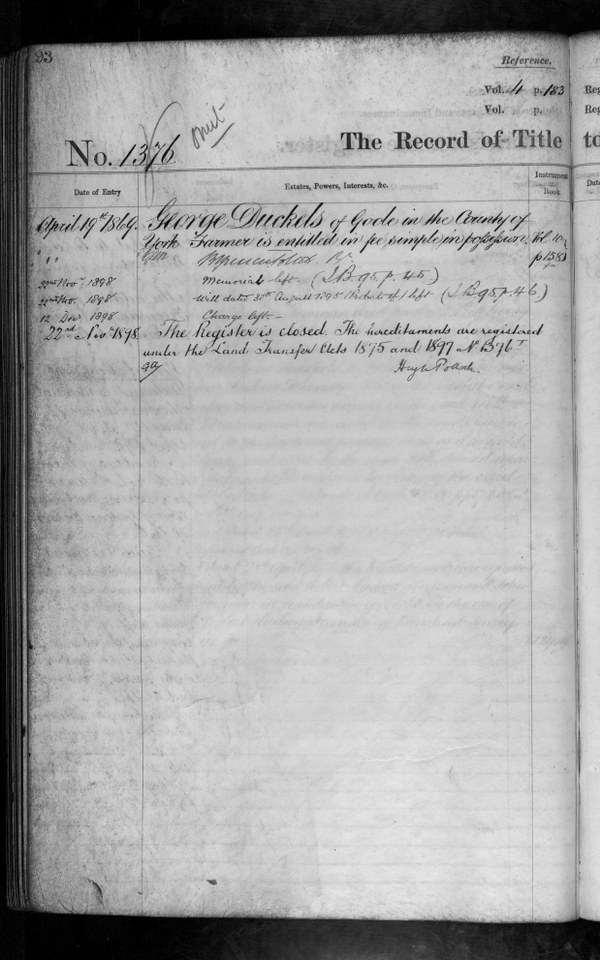 93
Reference.
Vol. 4 p. 183
Vol. p.
omit
No. 1376 The Record of Title
to
Date of Entry Estates, Powers, Interests, &c. Instrument Book
April 19th 1869. George Duckels of Goole in the County of
York Farmer is entitled in fee simple in possession. Vol. 10
p 158
22nd Novr. 1898 Memorial left. (I B 95, p. 45)
22nd Nov. 1898 Will dated 30th August 1895 Probate of left (I B 95, p. 46)
12 Dec 1898 Charge left —
22nd Novr 1898 The Register is closed. The hereditaments are registered
under the Land Transfer Acts 1875 and 1897 No B376